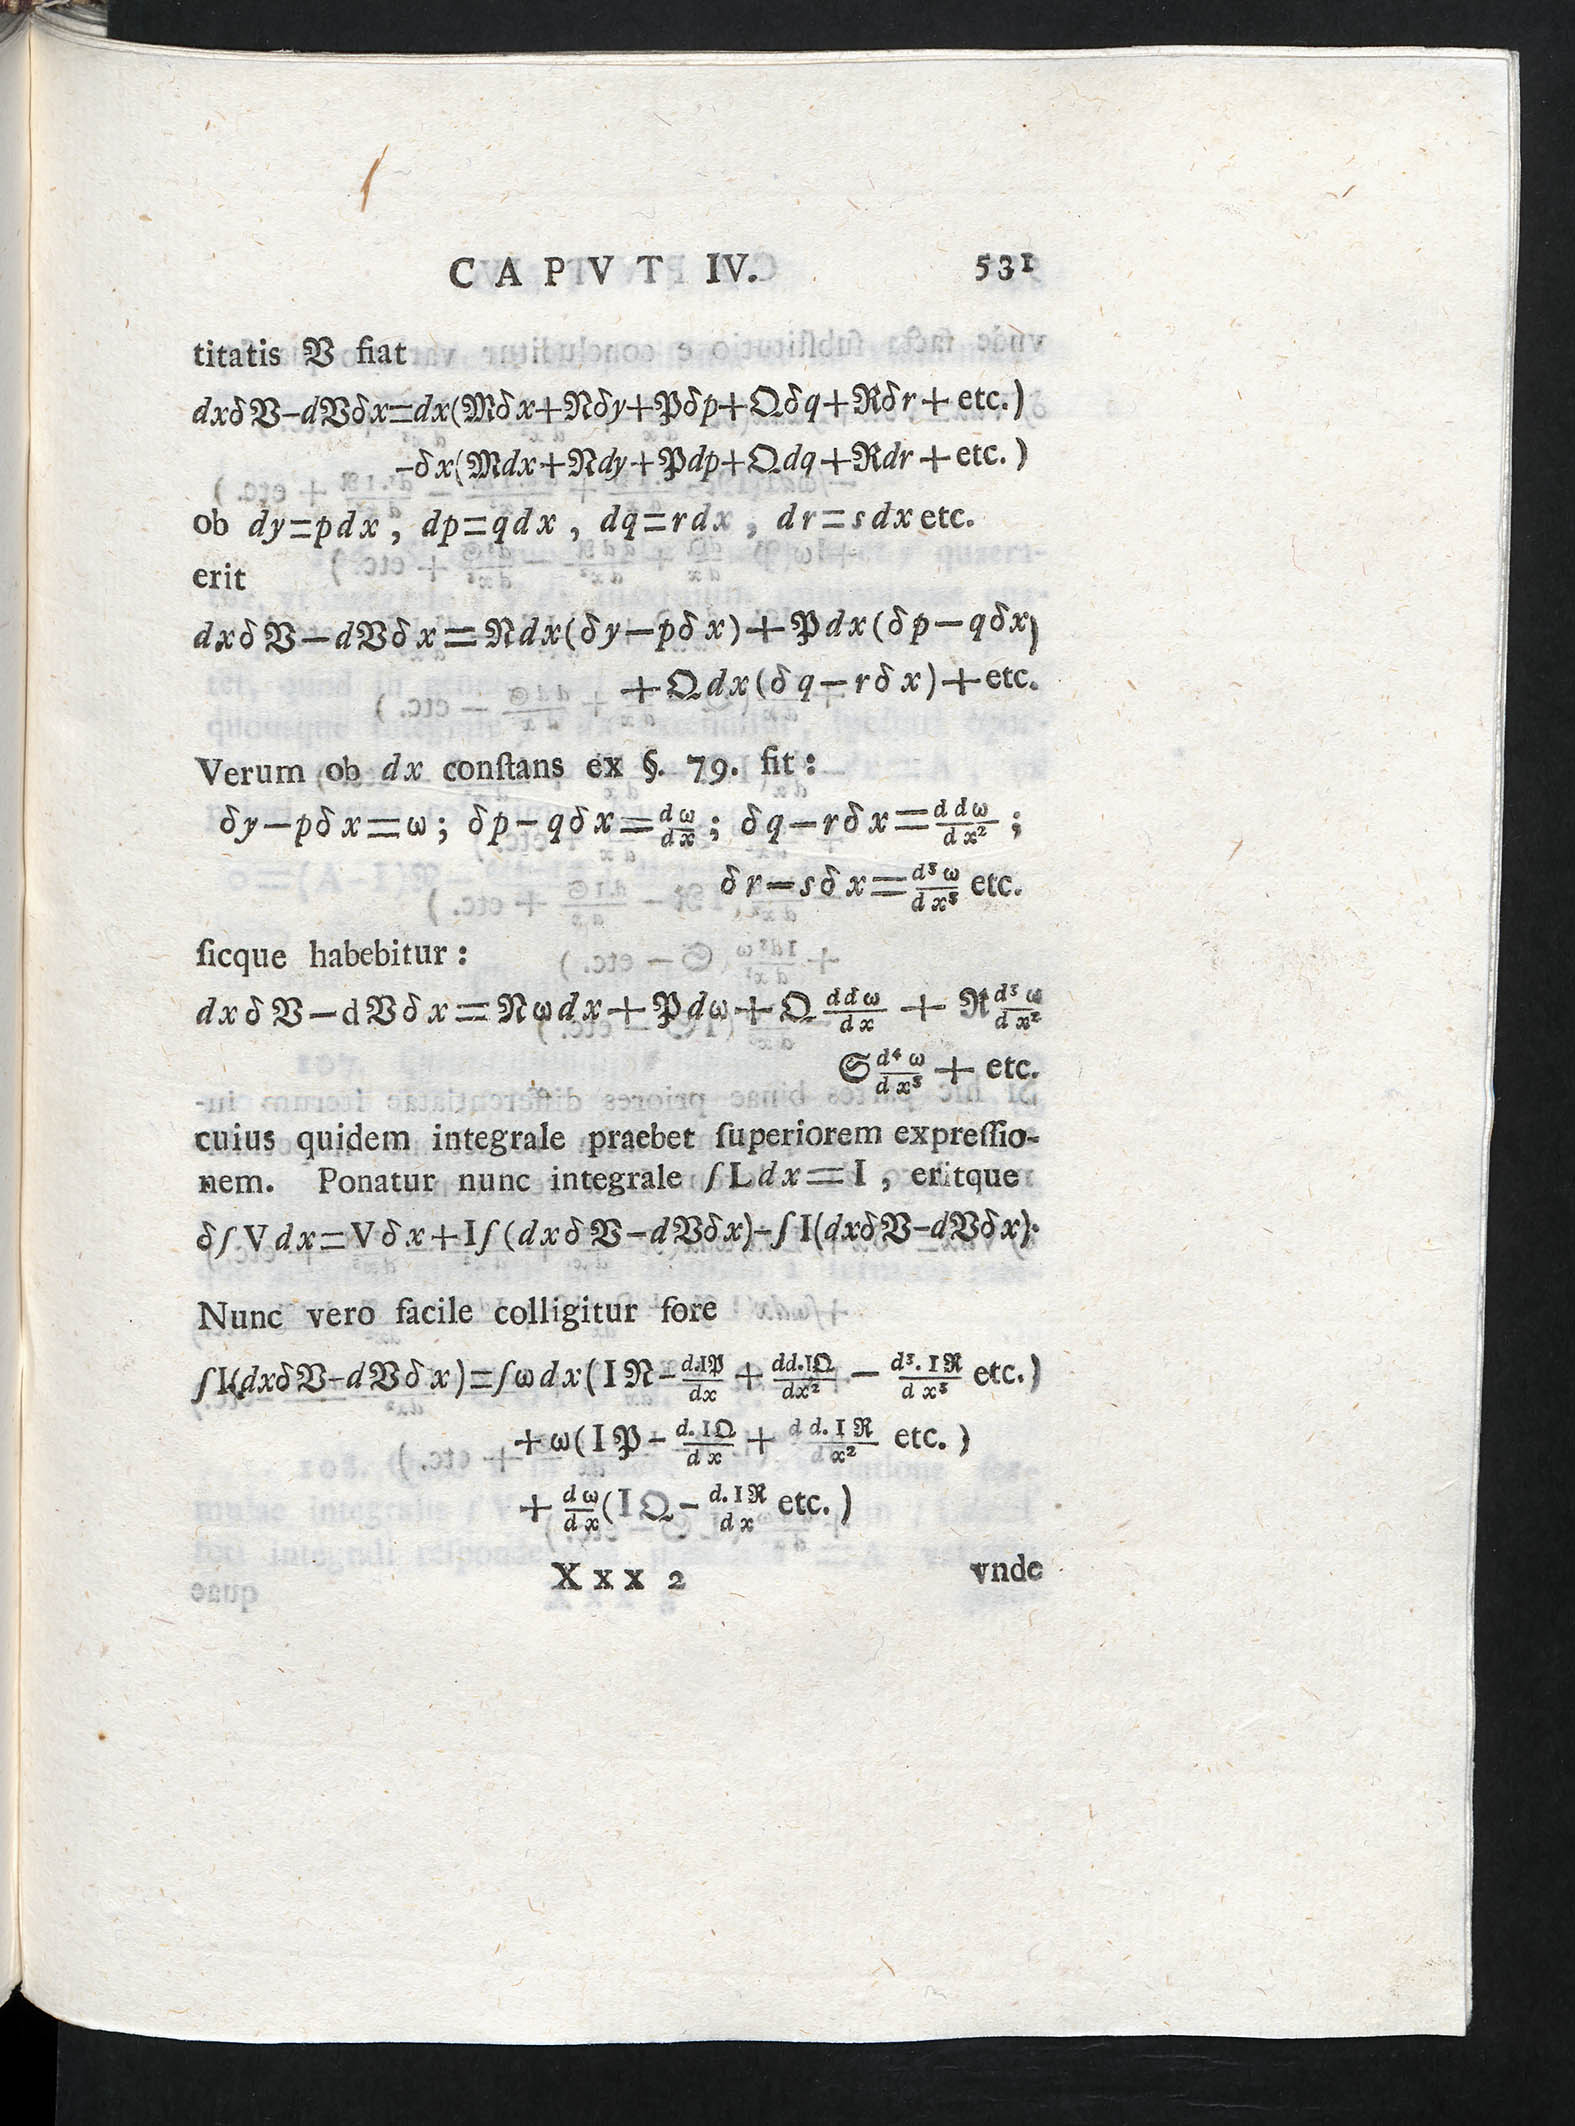 CAPVT IV. 531
titatis 𝔙 fiat
dxδ𝔙−d𝔙δx=dx(𝔐δx+𝔑δy+𝔓δp+𝔔δq+ℜδr+etc.)
−δx(𝔐dx+𝔑dy+𝔓dp+𝔔dq+ℜdr+etc.)
ob dy=pdx, dp=qdx, dq=rdx, dr=sdx etc.
erit
dxδ𝔙−d𝔙δx=𝔑dx(δy−pδx)+𝔓dx(δp−qδx)
+𝔔dx(δq−rδx)+etc.
Verum ob dx conſtans ex §. 79. fit:
δy−pδx=ω; δp−qδx=\frac{dω}{dx}; δq−rδx=\frac{ddω}{dx^2};
δr−sδx=\frac{d^3ω}{dx^3} etc.
ſicque habebitur:
dxδ𝔙−d𝔙δx=𝔑ωdx+𝔓dω+𝔔\frac{ddω}{dx}+ℜ\frac{d^3ω}{dx^2}
𝔖\frac{d^4ω}{dx^3}+etc.
cuius quidem integrale praebet ſuperiorem expreſſio-
nem. Ponatur nunc integrale ∫Ldx=I, eritque
δ∫Vdx=Vδx+I∫(dxδ𝔙−d𝔙δx)−∫I(dxδ𝔙−d𝔙δx).
Nunc vero facile colligitur fore
∫I(dxδ𝔙−d𝔙δx)=∫ωdx(I𝔑−\frac{d.I𝔓}{dx}+\frac{dd.I𝔔}{dx^2}−\frac{d^3.Iℜ}{dx^3} etc.)
+ω(I𝔓−\frac{d.I𝔔}{dx}+\frac{dd.Iℜ}{dx^2} etc.)
+\frac{dω}{dx}(I𝔔−\frac{d.Iℜ}{dx} etc.)
Xxx 2 vnde